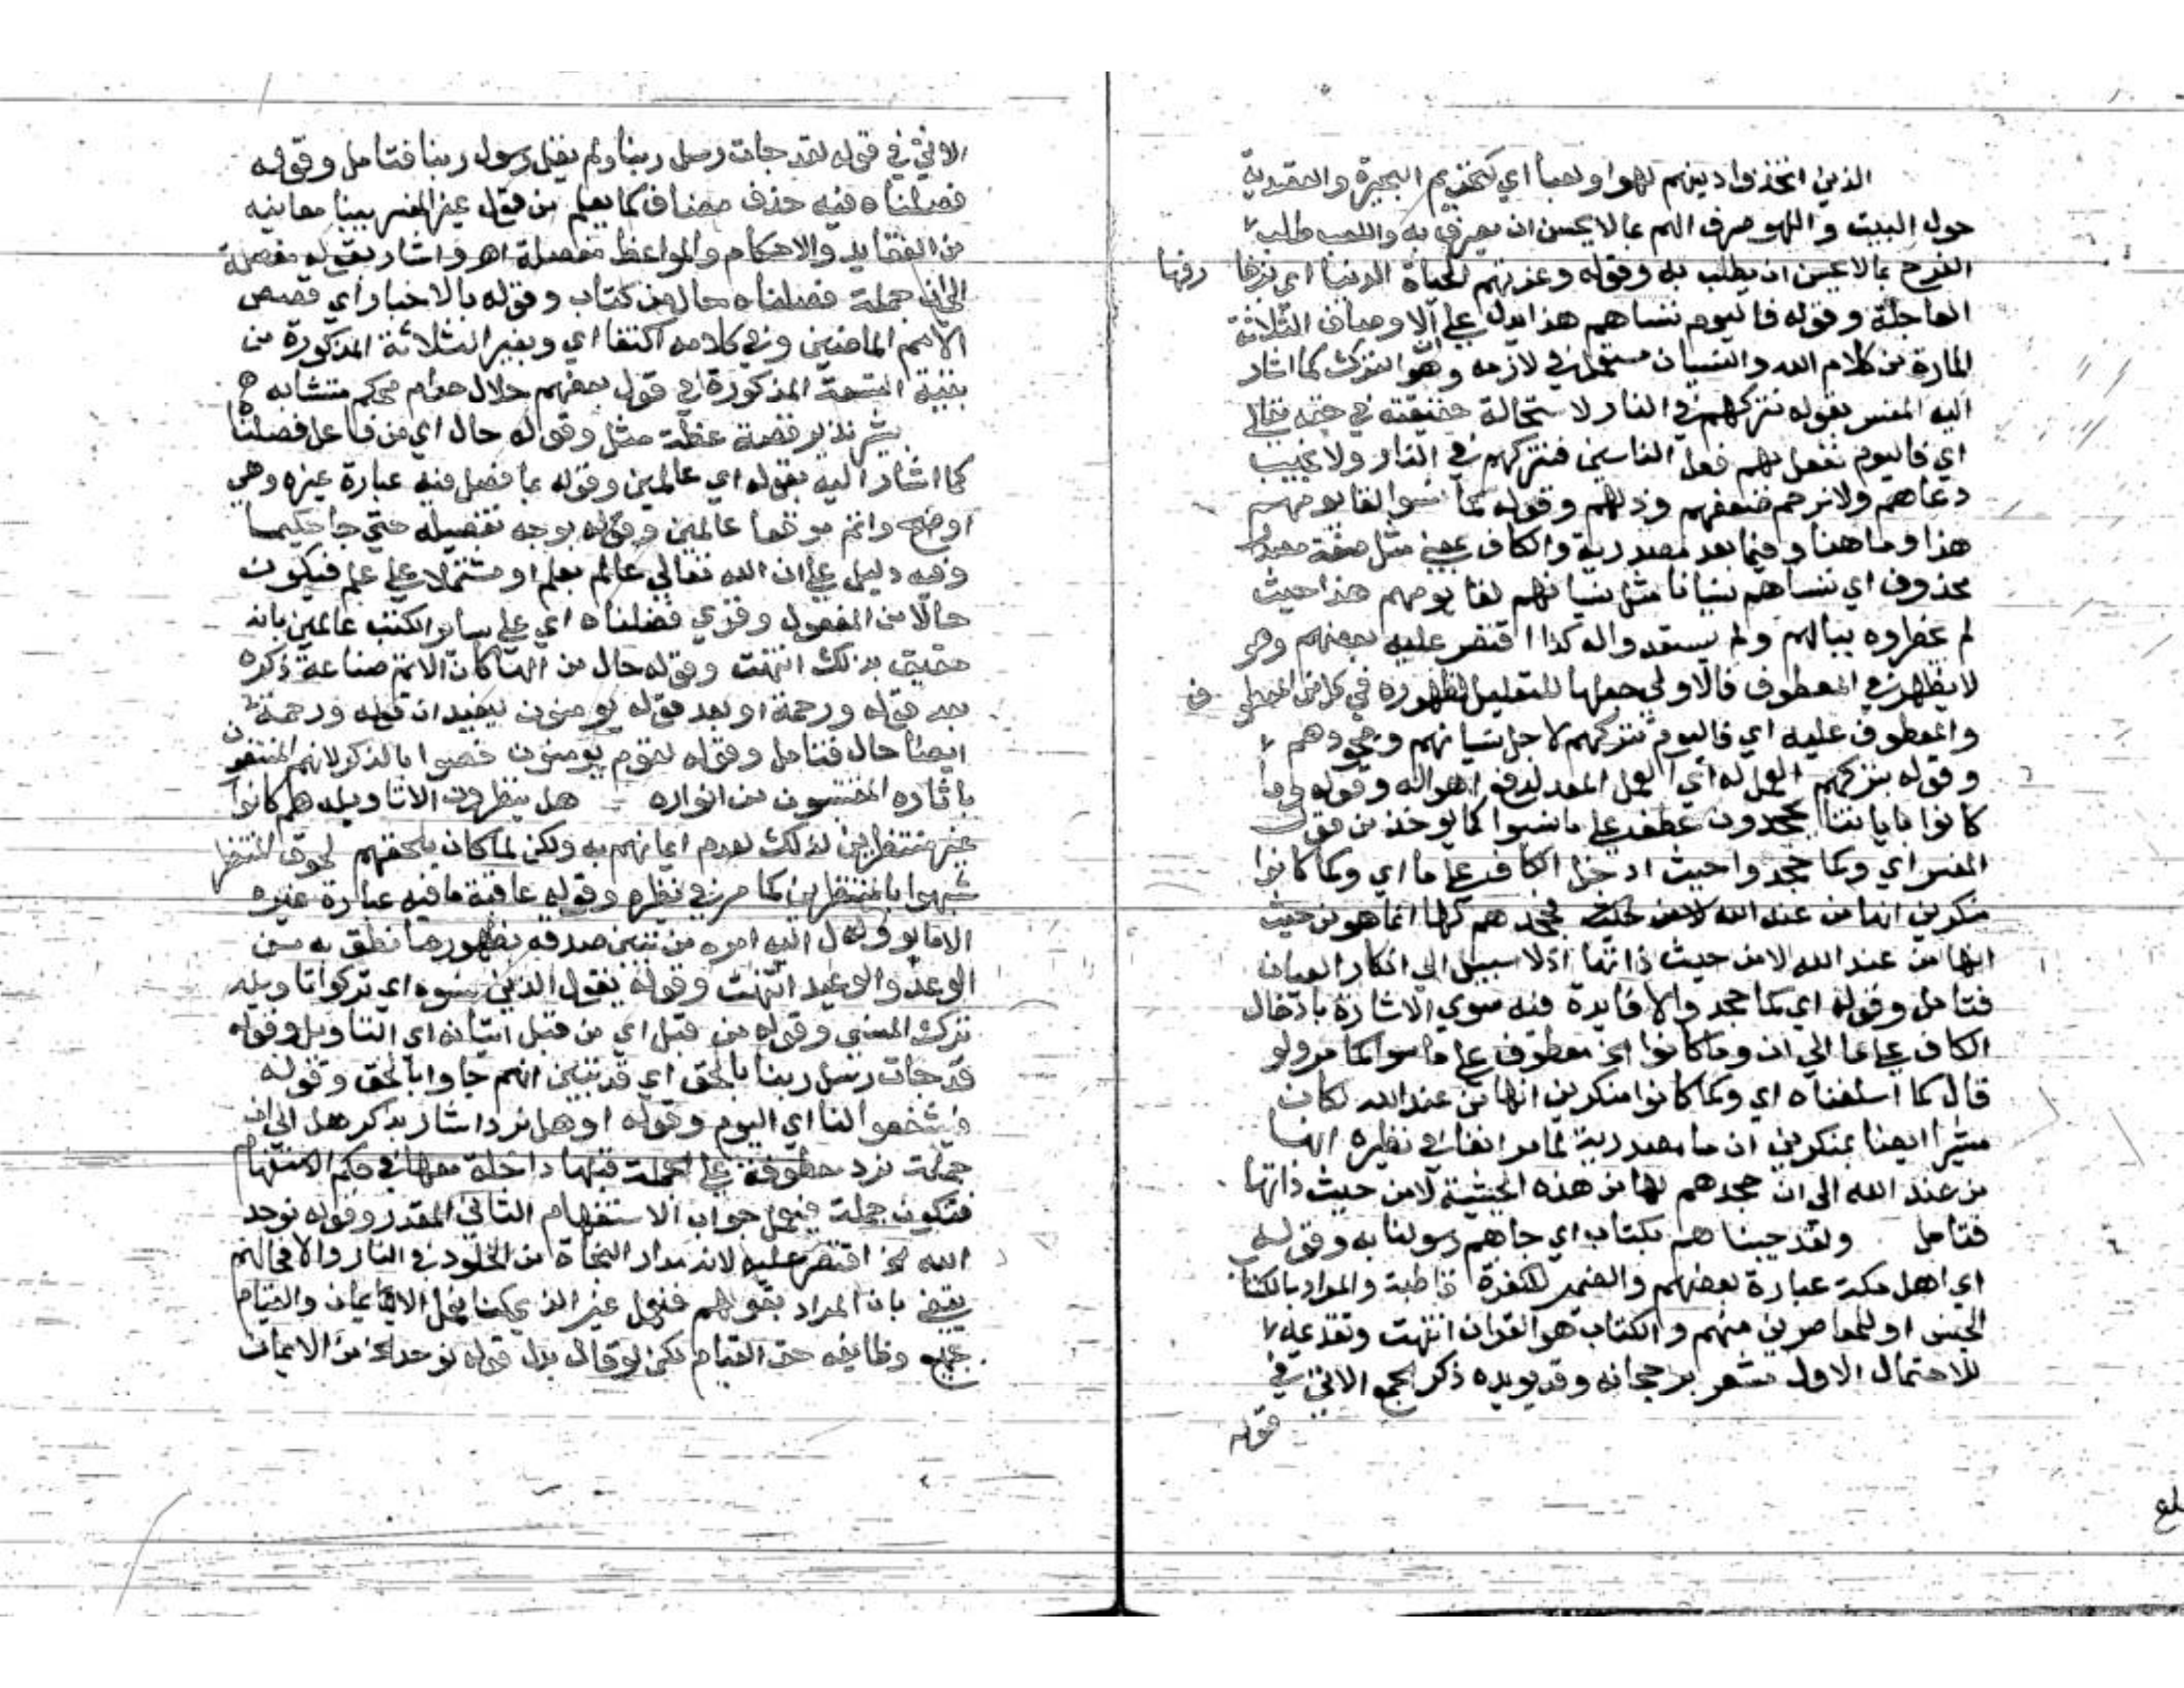 الذين اتخذوا دينهم لهوا ولعبا اي كتحريم البحيرة والتصدية
حول البيت واللهو صرف الهم بما لا يحسن ان يصرف به واللعب طلب
الفرح بما لا يحسن ان يطلب به وقوله وغرتهم الحياة الدنيا اي بزخا رفها
العاجلة وقوله فاليوم ننساهم هذا يدل على ان الاوصاف الثلاثة
المارة من كلام الله والنسيان مستعمل في لازمه وهو الترك كما اشار
اليه المفسر بقوله نتركهم في النار لاستحالة حقيقته في حقه تعالى
اي فاليوم نفعل بهم فعل الناسين فنتركهم في النار ولا نجيب
دعاهم ولا نرحم ضعفهم وذلهم وقوله كما نسوا لقا يومهم
هذا وما هنا وفيما بعد مصدرية والكاف بمعنى مثل صفة مصدر
محذوف اي ننساهم نسيانا مثل نسيانهم لقا يومهم هذا حيث
لم يخطروه ببالهم ولم يستعدوا له كذا اقتصر عليه بعضهم وهو
لا يظهر في المعطوف فالاولى جعلها للتعليل لظهوره في كل من المعطو ف
والمعطوف عليه اي فاليوم نتركهم لاجل نسيانهم وجحودهم
وقوله بتركهم العمل له اي العمل المعد لدفع اهواله وقوله وما
كانوا باياتنا يجحدون عطف على ما نسوا كما يوخذ من قول
المفسر اي وكما جحدوا حيث ادخل الكاف على ما اي وكما كانوا
منكرين انها من عند الله فجحدهم لها انما هو من حيث
انها من عند الله لا من حيث ذاتها اذ لا سبيل الى انكار العيان
فتامل وقوله اي كما جحدوا لا فايدة فيه سوى الاشارة بادخال
الكاف على ما الى ان وما كانوا الخ معطوف على ما نسوا كما مر ولو
قال كما اسلفناه اي وكما كانوا منكرين انها من عند الله لكان
مشيرا ايضا بمنكرين ان ما مصدرية لما مر انفا في نظيره انها
من عند الله الى ان جحدهم لها من هذه الحيثية لا من حيث ذاتها
فتامل ولقد جيناهم بكتاب اي جاهم رسولنا به وقوله
اي اهل مكة عبارة بعضهم والضمير للكفرة قاطبة والمراد بالكتاب
الجنس او للمعاصرين منهم والكتاب هو القران انتهت وتقديمه
للاحتمال الاول مشعر برجحانه وقد يويده ذكر الجمع الاتي في
قوله
الاتي في قوله لقد جات رسل ربنا ولم يقل رسول ربنا فتامل وقوله
فصلناه فيه حذف مضاف كما يعلم من قول غير المفسر بينا معانيه
من العقايد والاحكام والمواعظ مفصلة اهـ واشار بقوله مفصلة
الى ان جملة فصلناه حال من كتاب وقوله بالاخبار اي قصص
الامم الماضين وفي كلامه اكتفا اي وبغير الثلاثة المذكورة من
بقية التسعة المذكورة في قول بعضهم حلال حرام محكم متشابه
بشير نذير قصة عظة مثل وقوله حال اي من فاعل فصلنا
كما اشار اليه بقوله اي عالمين وقوله بما فصل فيه عبارة غيره وهي
اوضح واتم موقعا عالمين وقوله بوجه تفصيله حتى جا حكيما
وفيه دليل على ان الله تعالى عالم بعلم او مشتملا على علم فيكون
حالا من المفعول وقري فضلناه اي على ساير الكتب عالمين بانه
حقيق بذلك انتهت وقوله حال من الها كان الاتم صناعة ذكره
بعد قوله ورحمة او بعد قوله يومنون ليفيد ان قوله ورحمة
ايضا حال فتامل وقوله لقوم يومنون خصوا بالذكر لانهم المنتفعون
باثاره المقتبسون من انواره هل ينظرون الا تاويله هم كانوا
غير منتظرين لذلك لعدم ايمانهم به ولكن لما كان يلحقهم لحوق المنتظر
شبهوا بالمنتظرين كما مر في نظيره وقوله عاقبة ما فيه عبارة غيره
الا ما يوول اليه امره من تبين صدقه بظهور ما نطق به من
الوعد والوعيد انتهت وقوله يقول الذين نسوه اي تركوا تاويله
ترك المنسي وقوله من قبل اي من قبل اتيانه اي التاويل وقوله
قد جات رسل ربنا بالحق اي قد تبين انهم جاوا بالحق وقوله
فيشفعوا لنا اي اليوم وقوله او هل نرد اشار بذكر هل الى ان
جملة نرد معطوفة على الجملة قبلها داخلة معها في حكم الاستفهام
فتكون جملة فنعمل جواب الاستفهام الثاني المقدر وقوله نوحد
الله الخ اقتصر عليه لانه مدار النجاة من الخلود في النار والا فحالهم
يقضي بان المراد بقولهم فنعمل غير الذي كنا نعمل الايمان والقيام
بجميع وظايفه حق القيام لكن لو قال بدل قوله نوحد الخ من الايمان